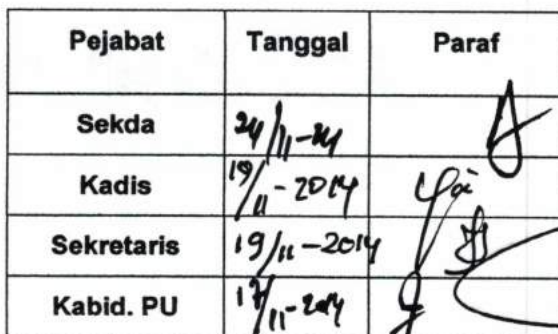 Pejabat Tanggal Paraf
Sekda 24/11-14
Kadis 19/11-2014
Sekretaris 19/11-2014
Kabid. PU 17/11-2014